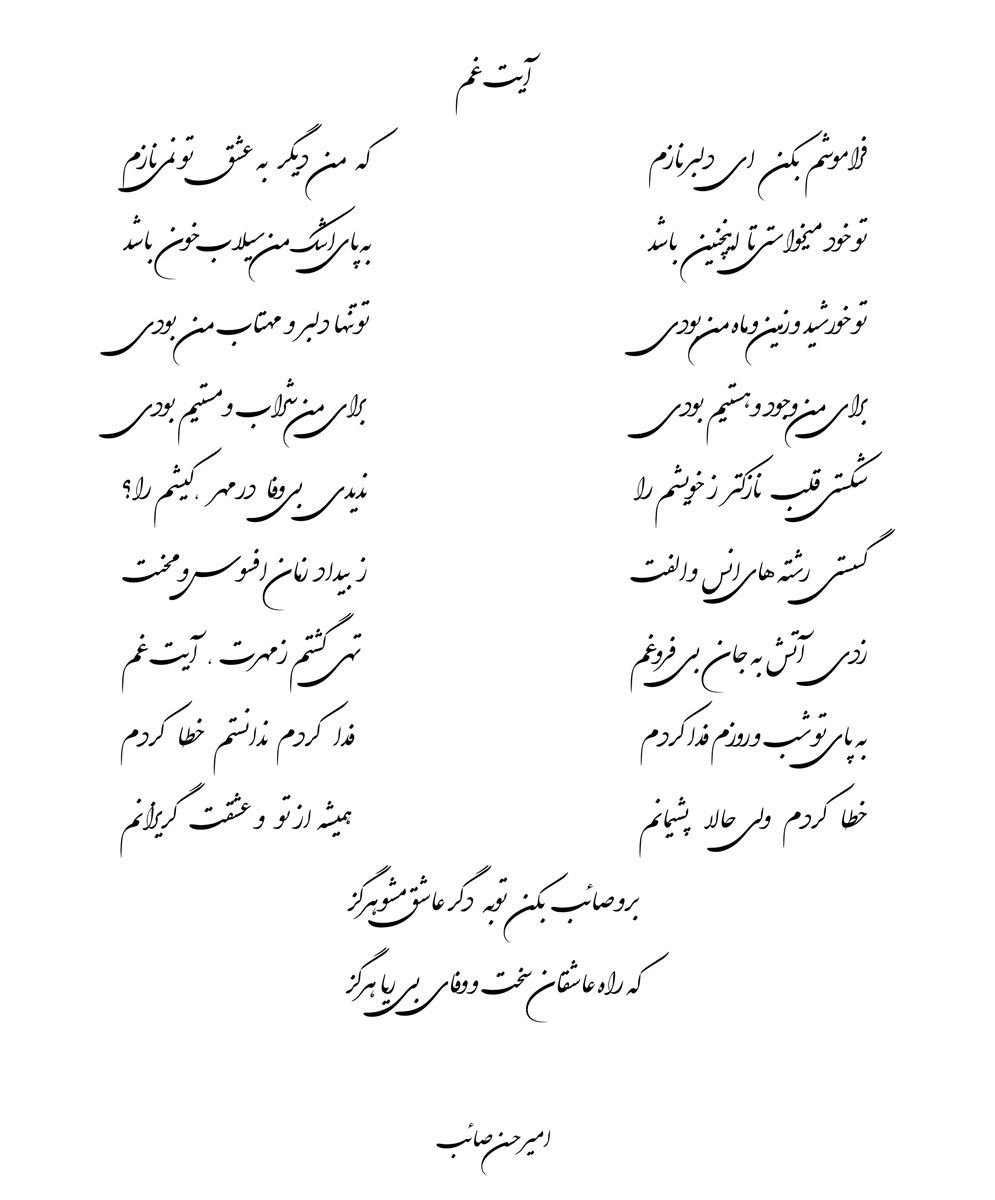 آیت غم
فراموشم بکن ای دلبر نازم که من دیگر به عشق تو نمی نازم
تو خود میخواستی تا اینچنین باشد به پای اشک من سیلاب خون باشد
تو خورشید و زمین و ماه من بودی تو تنها دلبر و مهتاب من بودی
برای من وجود و هستیم بودی برای من شراب و مستیم بودی
شکستی قلب نازکتر ز خویشم را ندیدی بی وفا در مهر ، کیشم را؟
گسستی رشته های انس و الفت ز بیداد زمان افسوس و محنت
زدی آتش به جان بی فروغم تهی گشتم ز مهرت ، آیت غم
به پای تو شب و روزم فدا کردم فدا کردم ندانستم خطا کردم
خطا کردم ولی حالا پشیمانم همیشه از تو و عشقت گریزانم
برو صائب بکن توبه دگر عاشق مشو هرگز
که راه عاشقان سخت و وفای بی ریا هرگز
امیرحسن صائب